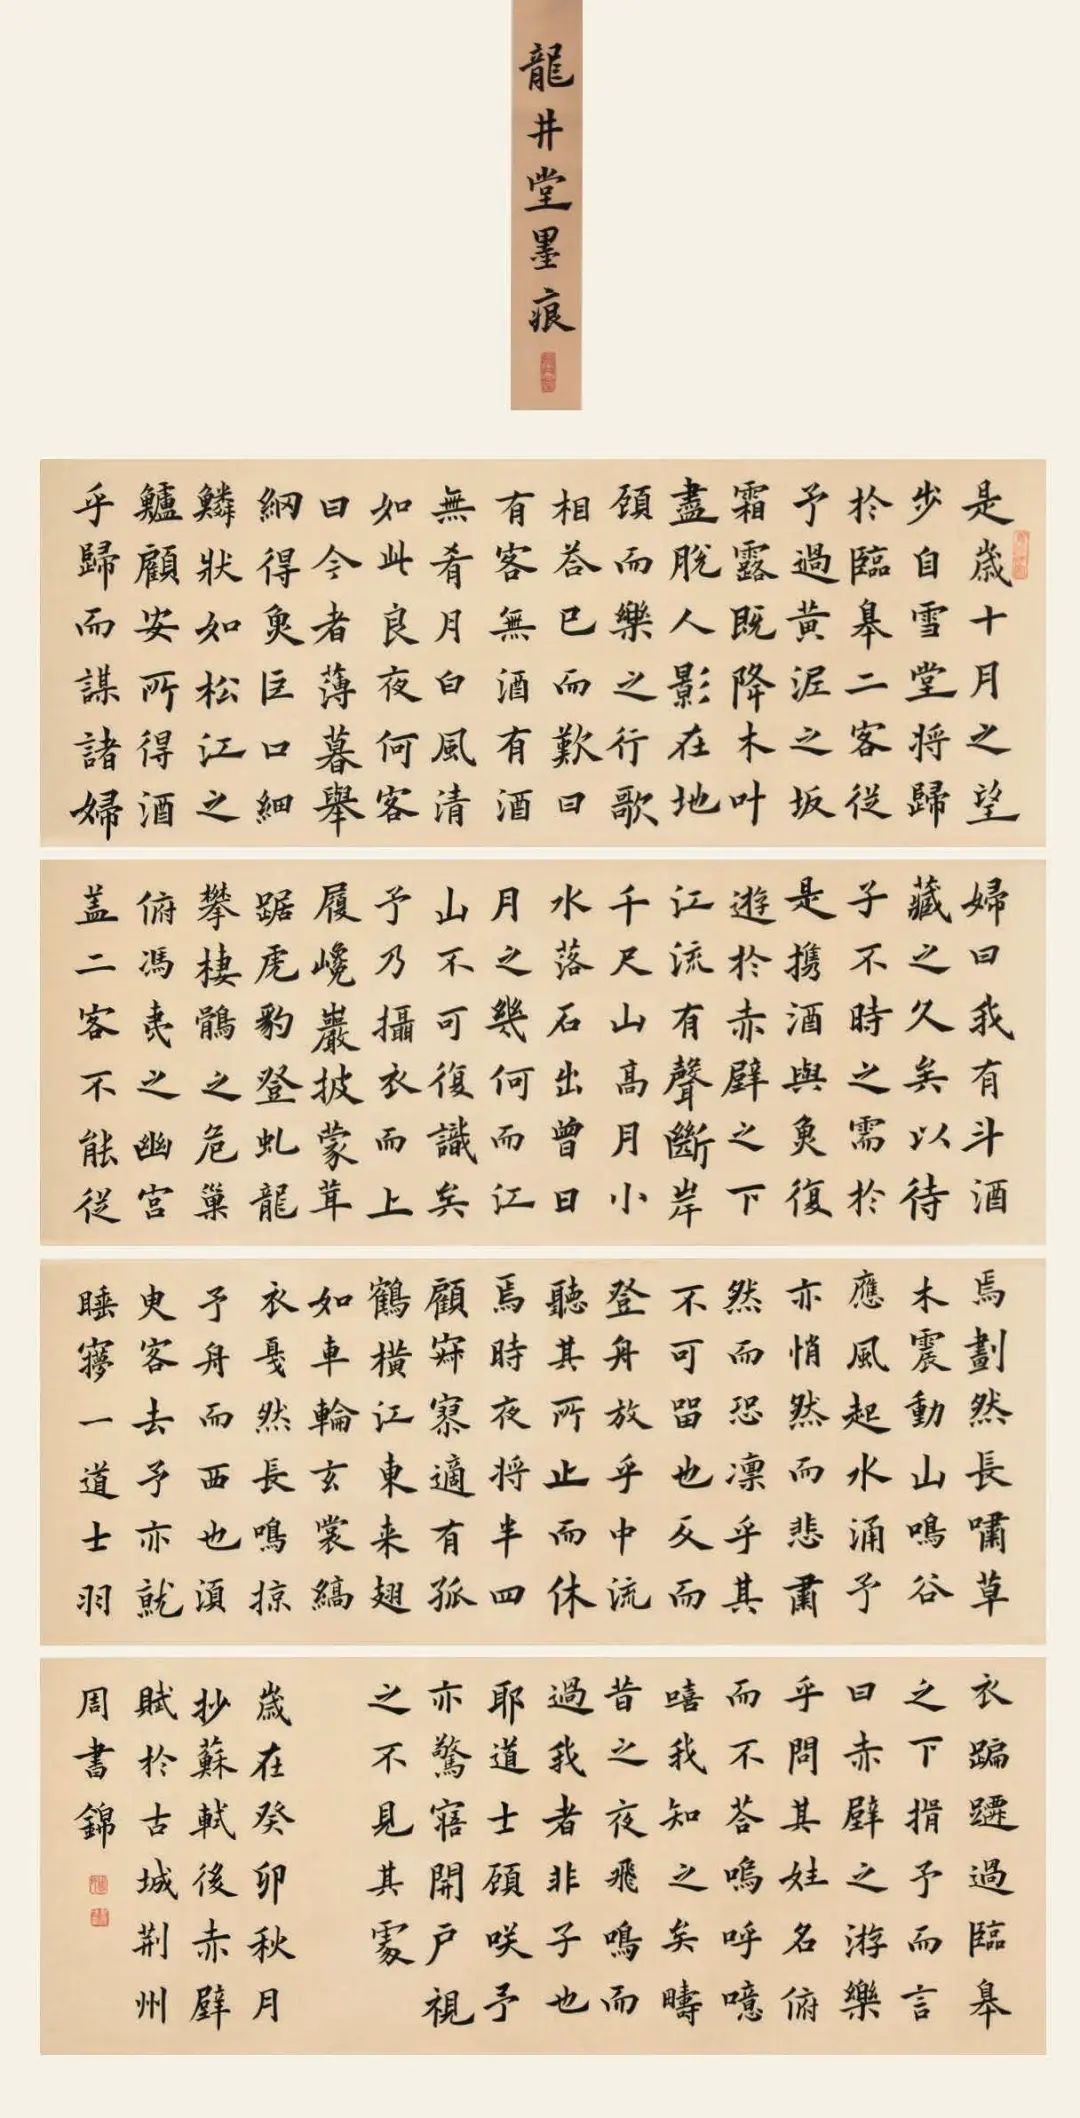 龍井堂墨痕
是歲十月之望
步自雪堂将歸
於臨皋二客從
予過黃泥之坂
霜露既降木叶
盡脫人影在地
顧而樂之行歌
相荅已而歎曰
有客無酒有酒
無肴月白風清
如此良夜何客
曰今者薄暮舉
網得魚巨口細
鱗狀如松江之
鱸顧安所得酒
乎歸而謀諸婦
婦曰我有斗酒
藏之久矣以待
子不時之需於
是携酒與魚復
遊於赤壁之下
江流有聲斷岸
千尺山高月小
水落石出曾日
月之幾何而江
山不可復識矣
予乃攝衣而上
履巉巖披蒙茸
踞虎豹登虬龍
攀棲鶻之危巢
俯馮夷之幽宮
盖二客不能從
焉劃然長嘯草
木震動山鳴谷
應風起水涌予
亦悄然而悲肅
然而恐凛乎其
不可留也反而
登舟放乎中流
聽其所止而休
焉時夜将半四
顧寂寥適有孤
鶴橫江東来翅
如車輪玄裳縞
衣戛然長鳴掠
予舟而西也須
臾客去予亦就
睡夢一道士羽
衣蹁躚過臨皋
之下揖予而言
曰赤壁之游樂
乎問其姓名俯
而不荅嗚呼噫
嘻我知之矣疇
昔之夜飛鳴而
過我者非子也
耶道士顧咲予
亦驚寤開戶視
之不見其處
歲在癸卯秋月
抄蘇軾後赤壁
賦於古城荆州
周書錦